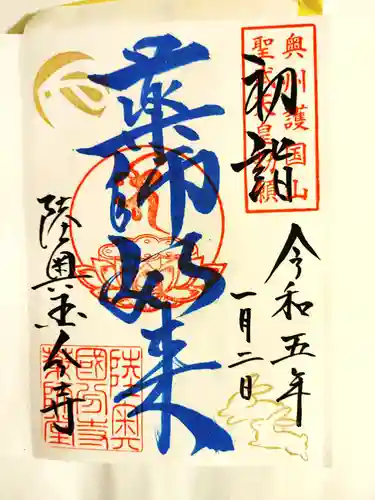 奥州護国山
聖武天皇勅願
初詣
令和五年
一月二日
薬師如来
陸奥国分寺
陸奥
国分寺
薬師堂